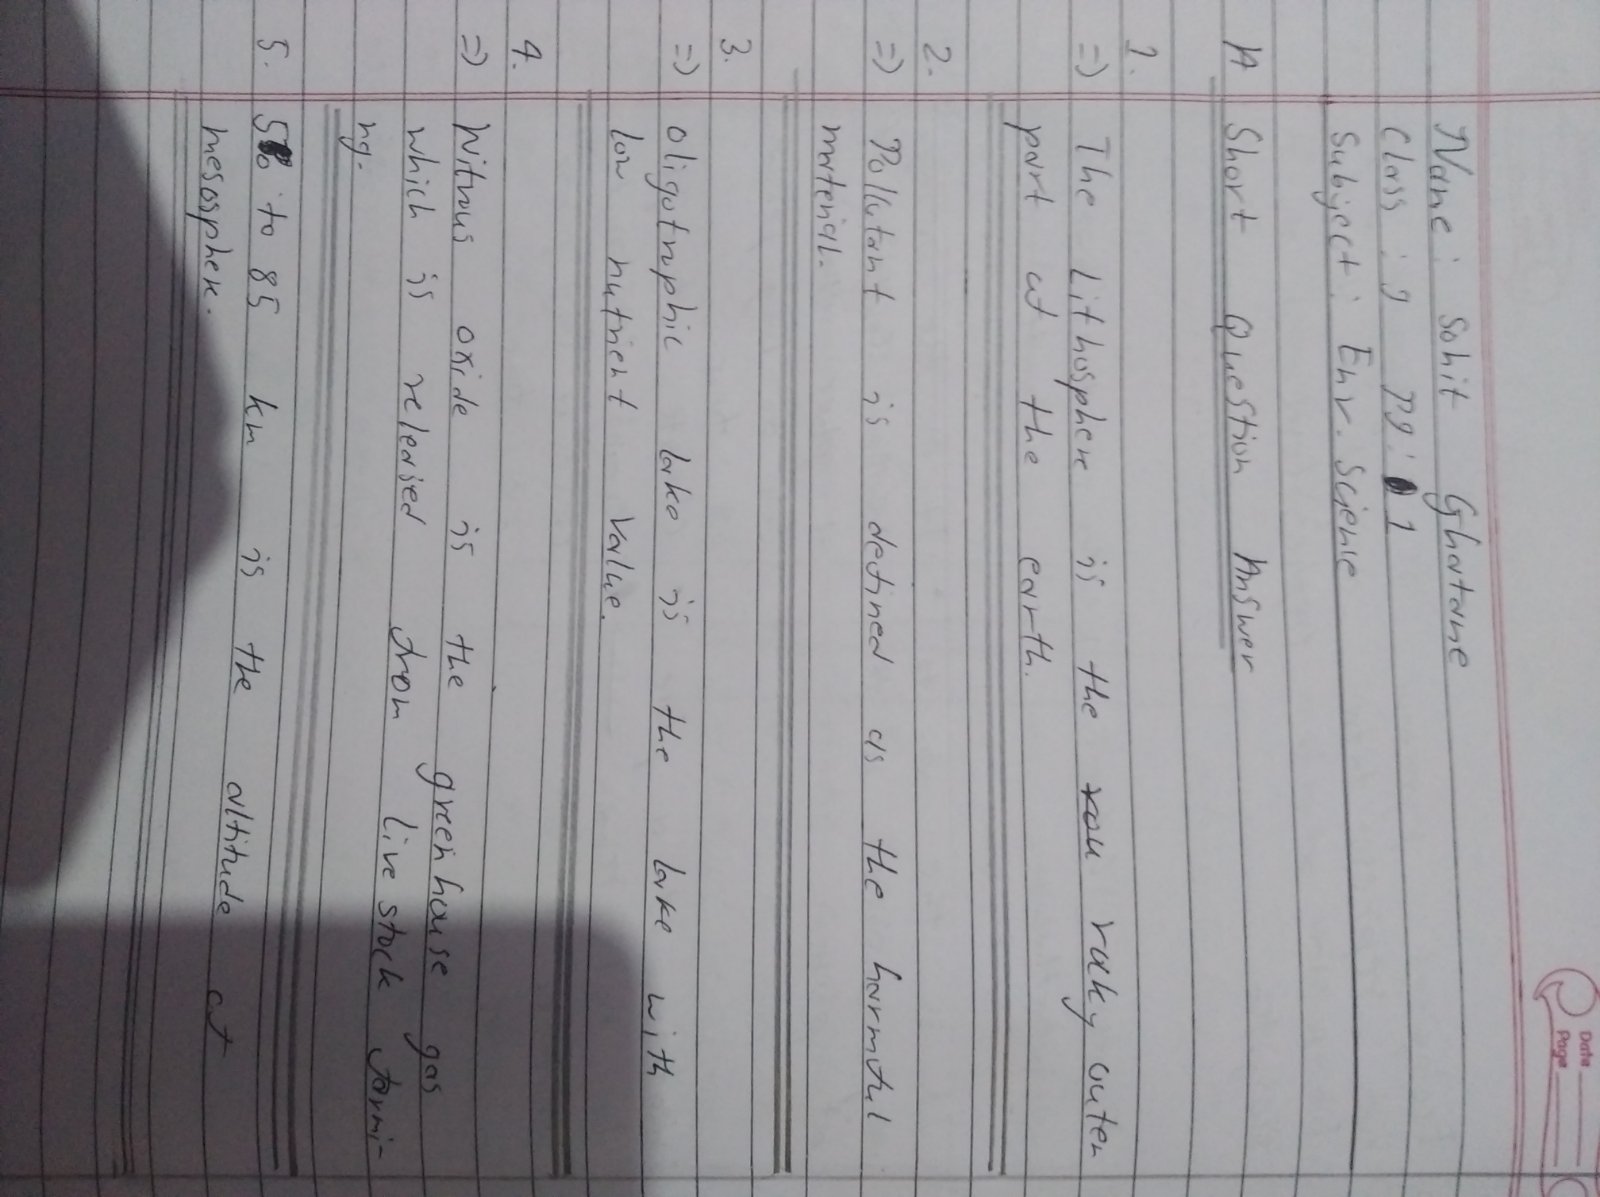 Date
Page
Name: Sohit Ghatane
Class: 9 Pg: 1
Subject: Env. Science
A Short Question Answer
1.
=) The Lithosphere is the rocky outer
part of the earth.
2.
=) Pollutant is defined as the harmful
material.
3.
=) Oligotrophic lake is the lake with
low nutrient value.
4.
=) Nitrous oxide is the greenhouse gas
which is released from live stock farmi-
ng.
5. 50 to 85 km is the altitude of
mesosphere.